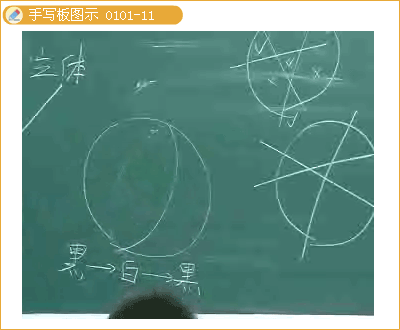 手写板图示 0101-11
立体
黑→白→黑